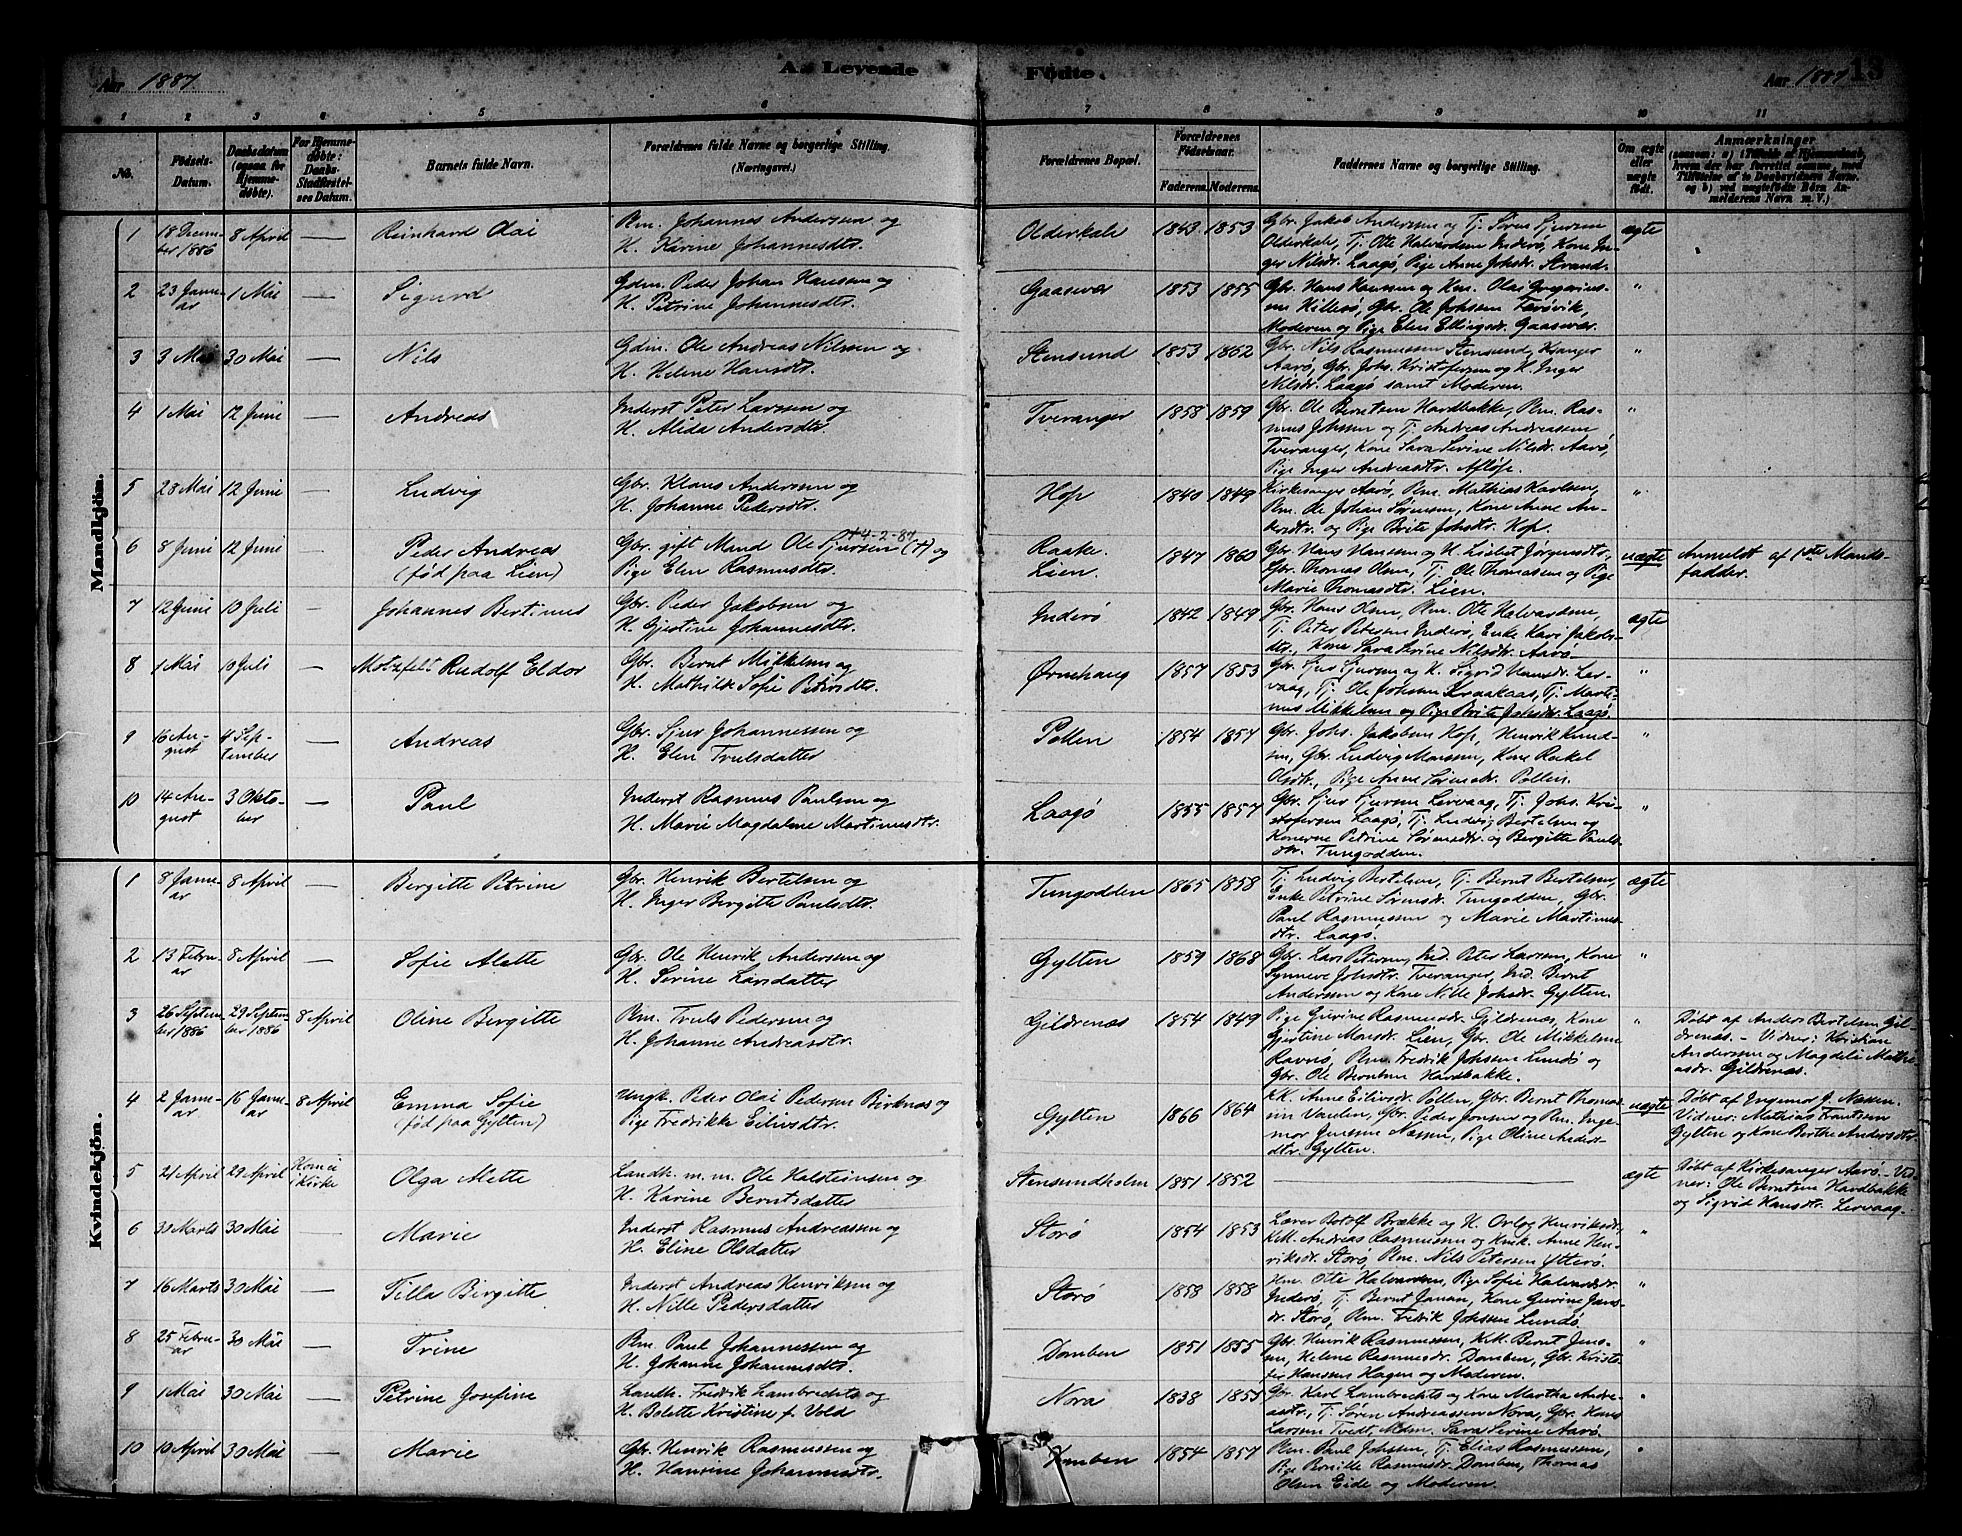 Aar 1887.
A. Levende
Fødte.
Aar 1887.
13
1 2 3 4 5 6 7 8 9 10 11
No.
Fødsels-
Datum.
Daabsdatum
(ogsaa for
Hjemme-
døbte).
For Hjemme-
døbte:
Daabs-
Stadfæstel-
ses Datum.
Barnets fulde Navn.
Forældrenes fulde Navne og borgerlige Stilling.
(Næringsvei.)
Forældrenes Bopæl.
Forældrenes
Fødselsaar.
Faderens. Moderens.
Faddernes Navne og borgerlige Stilling.
Om ægte
eller
uægte
født.
Anmærkninger
(saasom: a) i Tilfælde af Hjemmedaab,
hvem der har forrettet samme, med
Tilføielse af to Daabsvidners Navne.
og b) ved uægtefødte Børn An-
melderens Navn m. V.)
Mandkjön.
1
18 Decem-
ber 1886
8 April
—
Reinhard Olai
Pm. Johannes Anderssen og
H. Karine Johannesdtr.
Olderkale
1843 1853
Gbr. Jakob Anderssen og Tj. Søren Sjursen
Olderkale, Tj. Otte Halvardsen Inderø, Kone In-
ger Nilsdr. Laagø, Pige Anne Johsdr. Strand.
ægte
2
23 Janu-
ar
1 Mai
—
Sigurd
Gdm. Peder Johan Hanssen og
H. Petrine Johannesdtr.
Gaasvær
1853 1855
Gbr. Hans Hanssen og Km. Olai Gregorius-
sen Hillersø, Gbr. Ole Johssen Færøvik,
Moderen og Pige Elen Ellingsdr. Gaasvær.
"
3
3 Mai
30 Mai
—
Nils
Gdm. Ole Andreas Nilssen og
H. Helene Hansdtr.
Stensund
1853 1862
Gbr. Nils Rasmussen Stensund, Ksanger
Aarø, Gbr. Johs. Kristofersen og H. Inger
Nilsdr. Laagø samt Moderen.
"
4
1 Mai
12 Juni
—
Andreas
Inderst Peter Larssen og
H. Alida Andersdtr.
Tveranger
1858 1859
Gbr. Ole Berntsen Hardbakke, Pm. Ras-
mus Johssen og Tj. Andreas Andreassen
Tveranger, Kone Sara Serine Nilsdr. Aarø,
Pige Inger Andreasdtr. Afløp.
"
5
28 Mai
12 Juni
—
Ludvig
Gbr. Klaus Anderssen og
H. Johanne Pedersdtr.
Hop
1840 1849
Kirkesanger Aarø, Pm. Mathias Karlsen,
Pm. Ole Johan Sørensen, Kone Anne An-
dersdtr. og Pige Brite Johsdtr. Hop.
"
6
8 Juni
12 Juni
—
Peder Andreas
(fød paa Lien)
+4-2-87
Gbr. gift Mand Ole Sjursen (+) og
Pige Elen Rasmusdtr.
Raake.
Lien.
1847 1860
Gbr. Hans Hanssen og H. Lisbet Jørgensdtr.,
Gbr. Thomas Olsen, Tj. Ole Thomassen og Pige
Marie Thomasdtr. Lien.
uægte
Anmeldt af 1ste Mands-
fadder.
7
12 Juni
10 Juli
—
Johannes Bertinus
Gbr. Peder Jakobsen og
H. Gjertine Johannesdtr.
Inderø
1842 1849
Gbr. Hans Olsen, Pm. Otte Halvardsen,
Tj. Peter Petersen Inderø, Enke Kari Jakobs-
dtr., Kone Sara Serine Nilsdtr. Aarø
ægte
8
1 Mai
10 Juli
—
Motzfelt Rudolf Eldor
Gbr. Bernt Mikkelsen og
H. Mathilde Sofie Petersdtr.
Ørnehaug
1857 1853
Gbr. Sjur Sjursen og H. Sigrid Hansdr. Ler-
vaag, Tj. Ole Johssen Kraakaas, Tj. Marti-
nus Mikkelsen og Pige Brite Johsdr. Laagø.
"
9
16 Au-
gust
4 Sep-
tember
—
Andreas
Gbr. Sjur Johannessen og
H. Elen Trulsdatter
Pollen
1854 1857
Gbr. Johs. Jakobsen Hop, Henrik Knud-
sen, Gbr. Ludvig Monssen, Kone Rakel
Olsdtr., Pige Anne Sørensdr. Pollen.
"
10
14 Au-
gust
3 Okto-
ber
—
Paul
Inderst Rasmus Paulsen og
H. Marie Magdalene Martinusdtr.
Laagø
1855 1857
Gbr. Sjur Sjursen Lervaag, Tj. Johs. Kri-
stofersen Laagø, Tj. Ludvig Bertelsen og
Konerne Petrine Sørensdtr. og Bergitte Pauls-
dtr. Tungodden.
"
Kvindekjön.
1
8 Janu-
ar
8 April
—
Bergitte Petrine
Gbr. Henrik Bertelsen og
H. Inger Bergitte Paulsdtr.
Tungodden
1865 1858
Tj. Ludvig Bertelsen, Tj. Bernt Bertelsen,
Enke Petrine Sørensdr. Tungodden, Gbr.
Paul Rasmussen og Marie Martinus-
dtr. Laagø.
ægte
2
13 Febru-
ar
8 April
—
Sofie Alette
Gbr. Ole Henrik Anderssen og
H. Serine Larsdatter
Gylten
1859 1868
Gbr. Lars Petersen, Ind. Peter Larssen, Kone
Synneve Johsdtr. Tveranger, Ind. Bernt
Anderssen og Kone Nille Johsdr. Gylten.
"
3
26 Septem-
ber 1886
29 Septem-
ber 1886
8 April
Oline Bergitte
Pm. Truls Pedersen og
H. Johanne Andreasdtr.
Gildrenæs
1854 1849
Pige Gurine Rasmusdr. Gildrenæs, Kone
Gjertine Monsdr. Lien, Gbr. Ole Mikkelsen
Ravnø, Pm. Fredrik Johssen Lundø og
Gbr. Ole Berntsen Hardbakke.
"
Døbt af Anders Bertelsen Gil-
drenæs. - Vidner: Kristian
Anderssen og Magdeli Mathi-
asdr. Gildrenæs.
4
2 Janu-
ar
16 Janu-
ar
8 April
Emma Sofie
(fød paa Gylten)
Ungk. Peder Olai Pedersen Birknæs og
Pige Fredrikke Eilivsdtr.
Gylten
1866 1864
KK. Anne Eilivsdr. Pollen, Gbr. Bernt Thomas-
sen Vaulen, Gbr. Peder Jonsen og Pm. Inge-
mor Jenssen Næssen, Pige Oline Anders-
dtr. Gylten.
uægte
Døbt af Ingemor J. Næssen.
Vidner: Mathias Frantssen
Gylten og Kone Berthe Andersdtr.
5
21 April
29 April
Kom ei
i Kirke
Olga Alette
Landh. m. m. Ole Halsteinsen og
H. Karine Berntsdatter
Stensundholm
1851 1852
—
ægte
Døbt af Kirkesanger Aarø. - Vid-
ner: Ole Berntsen Hardbakke
og Sigrid Hansdtr. Lervaag.
6
30 Marts
30 Mai
—
Marie
Inderst Rasmus Andreassen og
H. Eline Olsdatter
Storø
1854 1853
Lærer Botolf Brække og H. Orlog Henriksdr.,
K.M. Andreas Rasmussen og Kvik. Anne Hen-
riksdr. Storø, Pm. Nils Petersen Ytterø.
"
7
16 Marts
30 Mai
—
Tilla Birgitte
Inderst Andreas Henriksen og
H. Nille Pedersdatter
Storø
1858 1858
Pm. Otte Halvardsen, Pige Sofie Halvardsdr.
Inderø, Tj. Bernt Janan, Kone Gurine Jans-
dr. Storø, Pm. Fredrik Johssen Lundø
"
8
25 Febru-
ar
30 Mai
—
Trine
Pm. Paul Johannessen og
H. Johanne Johannesdtr.
Domben
1851 1855
Gbr. Henrik Rasmussen, K.M. Bernt Jens-
sen, Helene Rasmusdr. Domben, Gbr. Kristo-
fer Hanssen Hagen og Moderen.
"
9
1 Mai
30 Mai
—
Petrine Josefine
Landh. Fredrik Lambrechts og
H. Bolette Kristine f. Vold
Nora
1838 1855
Gbr. Karl Lambrechts og Kone Martha Andre-
asdtr., Tj. Søren Andreassen Nora, Gbr. Hans
Larssen Tvedt, Mdm. Sara Serine Aarø.
"
10
10 April
30 Mai
—
Marie
Gbr. Henrik Rasmussen og
H. Hansine Johannesdtr.
Domben
1854 1857
Pm. Paul Johssen, Tj. Elias Rasmussen,
Pige Pernille Rasmusdr. Domben, Thomas
Olsen Eide og Moderen.
"